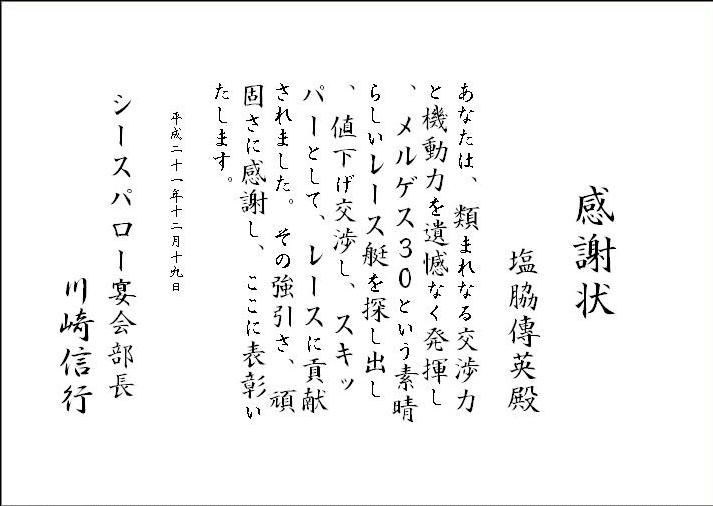 感謝状
塩脇傳英殿
あなたは、類まれなる交渉力
と機動力を遺憾なく発揮し
、メルゲス30という素晴
らしいレース艇を探し出し
、値下げ交渉し、スキッ
パーとして、レースに貢献
されました。その強引さ、頑
固さに感謝し、ここに表彰い
たします。
平成二十一年十二月十九日
シースパロー宴会部長
川崎信行